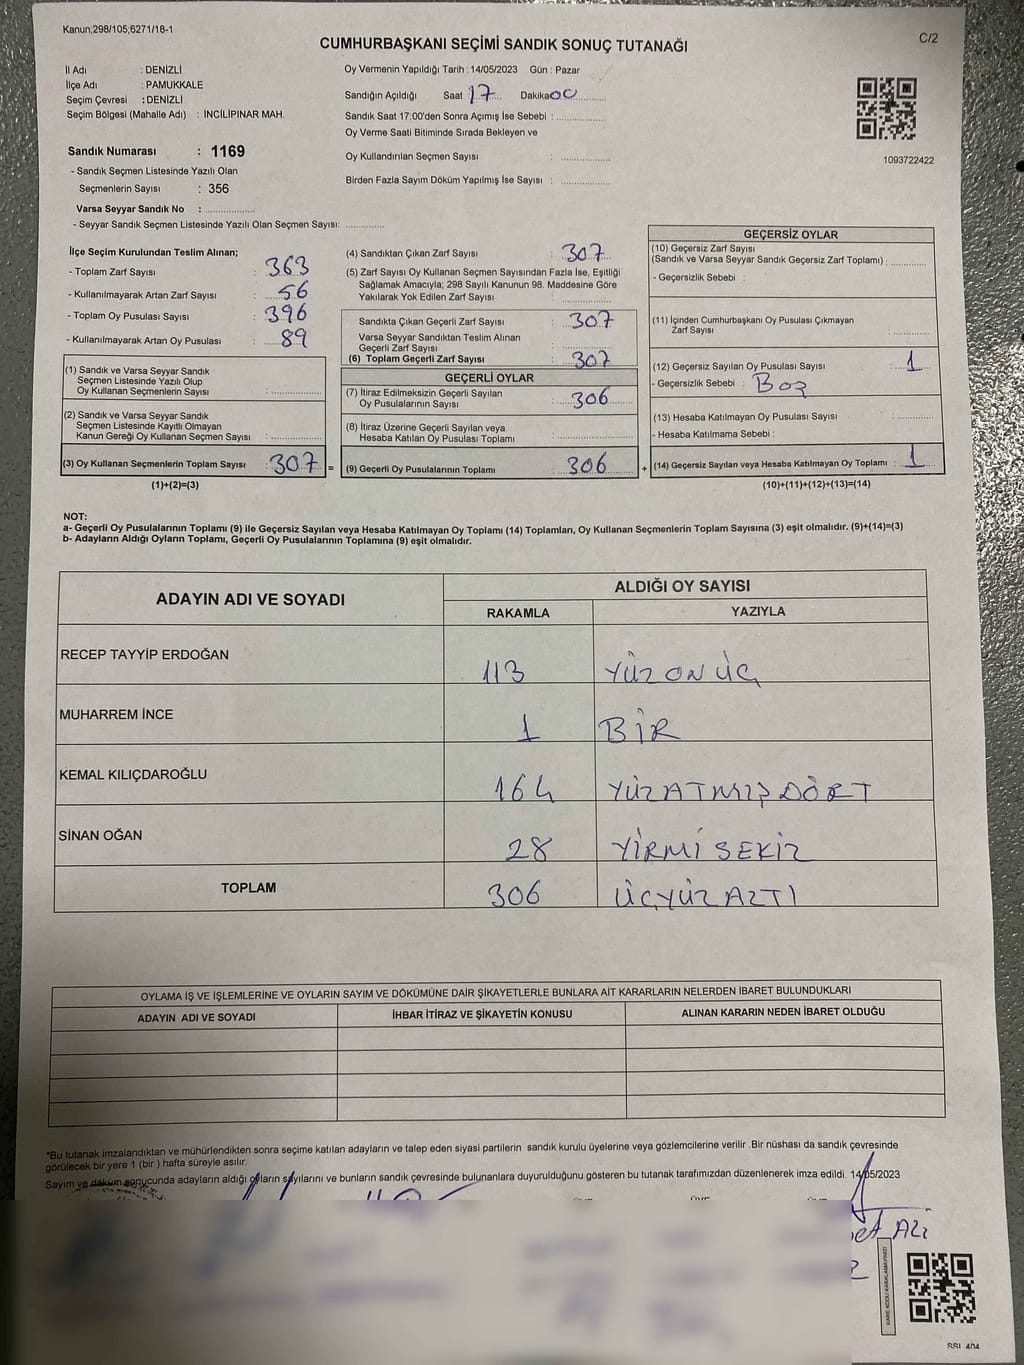 Kanun;298/105;6271/18-1
C/2
CUMHURBAŞKANI SEÇİMİ SANDIK SONUÇ TUTANAĞI
İl Adı : DENİZLİ
İlçe Adı : PAMUKKALE
Seçim Çevresi : DENİZLİ
Seçim Bölgesi (Mahalle Adı) : İNCİLİPINAR MAH.
Sandık Numarası : 1169
- Sandık Seçmen Listesinde Yazılı Olan
Seçmenlerin Sayısı : 356
Varsa Seyyar Sandık No : ..................
- Seyyar Sandık Seçmen Listesinde Yazılı Olan Seçmen Sayısı: ..............
Oy Vermenin Yapıldığı Tarih : 14/05/2023 Gün : Pazar
Sandığın Açıldığı Saat 17 Dakika 00
Sandık Saat 17:00'den Sonra Açımış İse Sebebi : ..................
Oy Verme Saati Bitiminde Sırada Bekleyen ve
Oy Kullandırılan Seçmen Sayısı : ..................
Birden Fazla Sayım Döküm Yapılmış İse Sayısı : ..................
1093722422
İlçe Seçim Kurulundan Teslim Alınan;
- Toplam Zarf Sayısı : 363
- Kullanılmayarak Artan Zarf Sayısı : 56
- Toplam Oy Pusulası Sayısı : 396
- Kullanılmayarak Artan Oy Pusulası : 89
(1) Sandık ve Varsa Seyyar Sandık
Seçmen Listesinde Yazılı Olup
Oy Kullanan Seçmenlerin Sayısı : ..................
(2) Sandık ve Varsa Seyyar Sandık
Seçmen Listesinde Kayıtlı Olmayan
Kanun Gereği Oy Kullanan Seçmen Sayısı : ..................
(3) Oy Kullanan Seçmenlerin Toplam Sayısı : 307 =
(1)+(2)=(3)
(4) Sandıktan Çıkan Zarf Sayısı : 307
(5) Zarf Sayısı Oy Kullanan Seçmen Sayısından Fazla İse, Eşitliği
Sağlamak Amacıyla; 298 Sayılı Kanunun 98. Maddesine Göre
Yakılarak Yok Edilen Zarf Sayısı : ..................
Sandıkta Çıkan Geçerli Zarf Sayısı : 307
Varsa Seyyar Sandıktan Teslim Alınan
Geçerli Zarf Sayısı : ..................
(6) Toplam Geçerli Zarf Sayısı : 307
GEÇERLİ OYLAR
(7) İtiraz Edilmeksizin Geçerli Sayılan
Oy Pusulalarının Sayısı : 306
(8) İtiraz Üzerine Geçerli Sayılan veya
Hesaba Katılan Oy Pusulası Toplamı : ..................
(9) Geçerli Oy Pusulalarının Toplamı : 306 +
GEÇERSİZ OYLAR
(10) Geçersiz Zarf Sayısı
(Sandık ve Varsa Seyyar Sandık Geçersiz Zarf Toplamı) : ............
- Geçersizlik Sebebi :
(11) İçinden Cumhurbaşkanı Oy Pusulası Çıkmayan
Zarf Sayısı : ............
(12) Geçersiz Sayılan Oy Pusulası Sayısı : 1
- Geçersizlik Sebebi : Boş
(13) Hesaba Katılmayan Oy Pusulası Sayısı : ............
- Hesaba Katılmama Sebebi :
(14) Geçersiz Sayılan veya Hesaba Katılmayan Oy Toplamı : 1
(10)+(11)+(12)+(13)=(14)
NOT:
a- Geçerli Oy Pusulalarının Toplamı (9) ile Geçersiz Sayılan veya Hesaba Katılmayan Oy Toplamı (14) Toplamları, Oy Kullanan Seçmenlerin Toplam Sayısına (3) eşit olmalıdır. (9)+(14)=(3)
b- Adayların Aldığı Oyların Toplamı, Geçerli Oy Pusulalarının Toplamına (9) eşit olmalıdır.
ADAYIN ADI VE SOYADI
ALDIĞI OY SAYISI
RAKAMLA YAZIYLA
RECEP TAYYİP ERDOĞAN 113 YÜZ ON ÜÇ
MUHARREM İNCE 1 BİR
KEMAL KILIÇDAROĞLU 164 YÜZATMIŞDÖRT
SİNAN OĞAN 28 YİRMİ SEKİZ
TOPLAM 306 ÜÇYÜZALTI
OYLAMA İŞ VE İŞLEMLERİNE VE OYLARIN SAYIM VE DÖKÜMÜNE DAİR ŞİKAYETLERLE BUNLARA AİT KARARLARIN NELERDEN İBARET BULUNDUKLARI
ADAYIN ADI VE SOYADI İHBAR İTİRAZ VE ŞİKAYETİN KONUSU ALINAN KARARIN NEDEN İBARET OLDUĞU
*Bu tutanak imzalandıktan ve mühürlendikten sonra seçime katılan adayların ve talep eden siyasi partilerin sandık kurulu üyelerine veya gözlemcilerine verilir .Bir nüshası da sandık çevresinde
görülecek bir yere 1 (bir ) hafta süreyle asılır.
Sayım ve döküm sonucunda adayların aldığı oyların sayılarını ve bunların sandık çevresinde bulunanlara duyurulduğunu gösteren bu tutanak tarafımızdan düzenlenerek imza edildi. 14/05/2023
ALİ